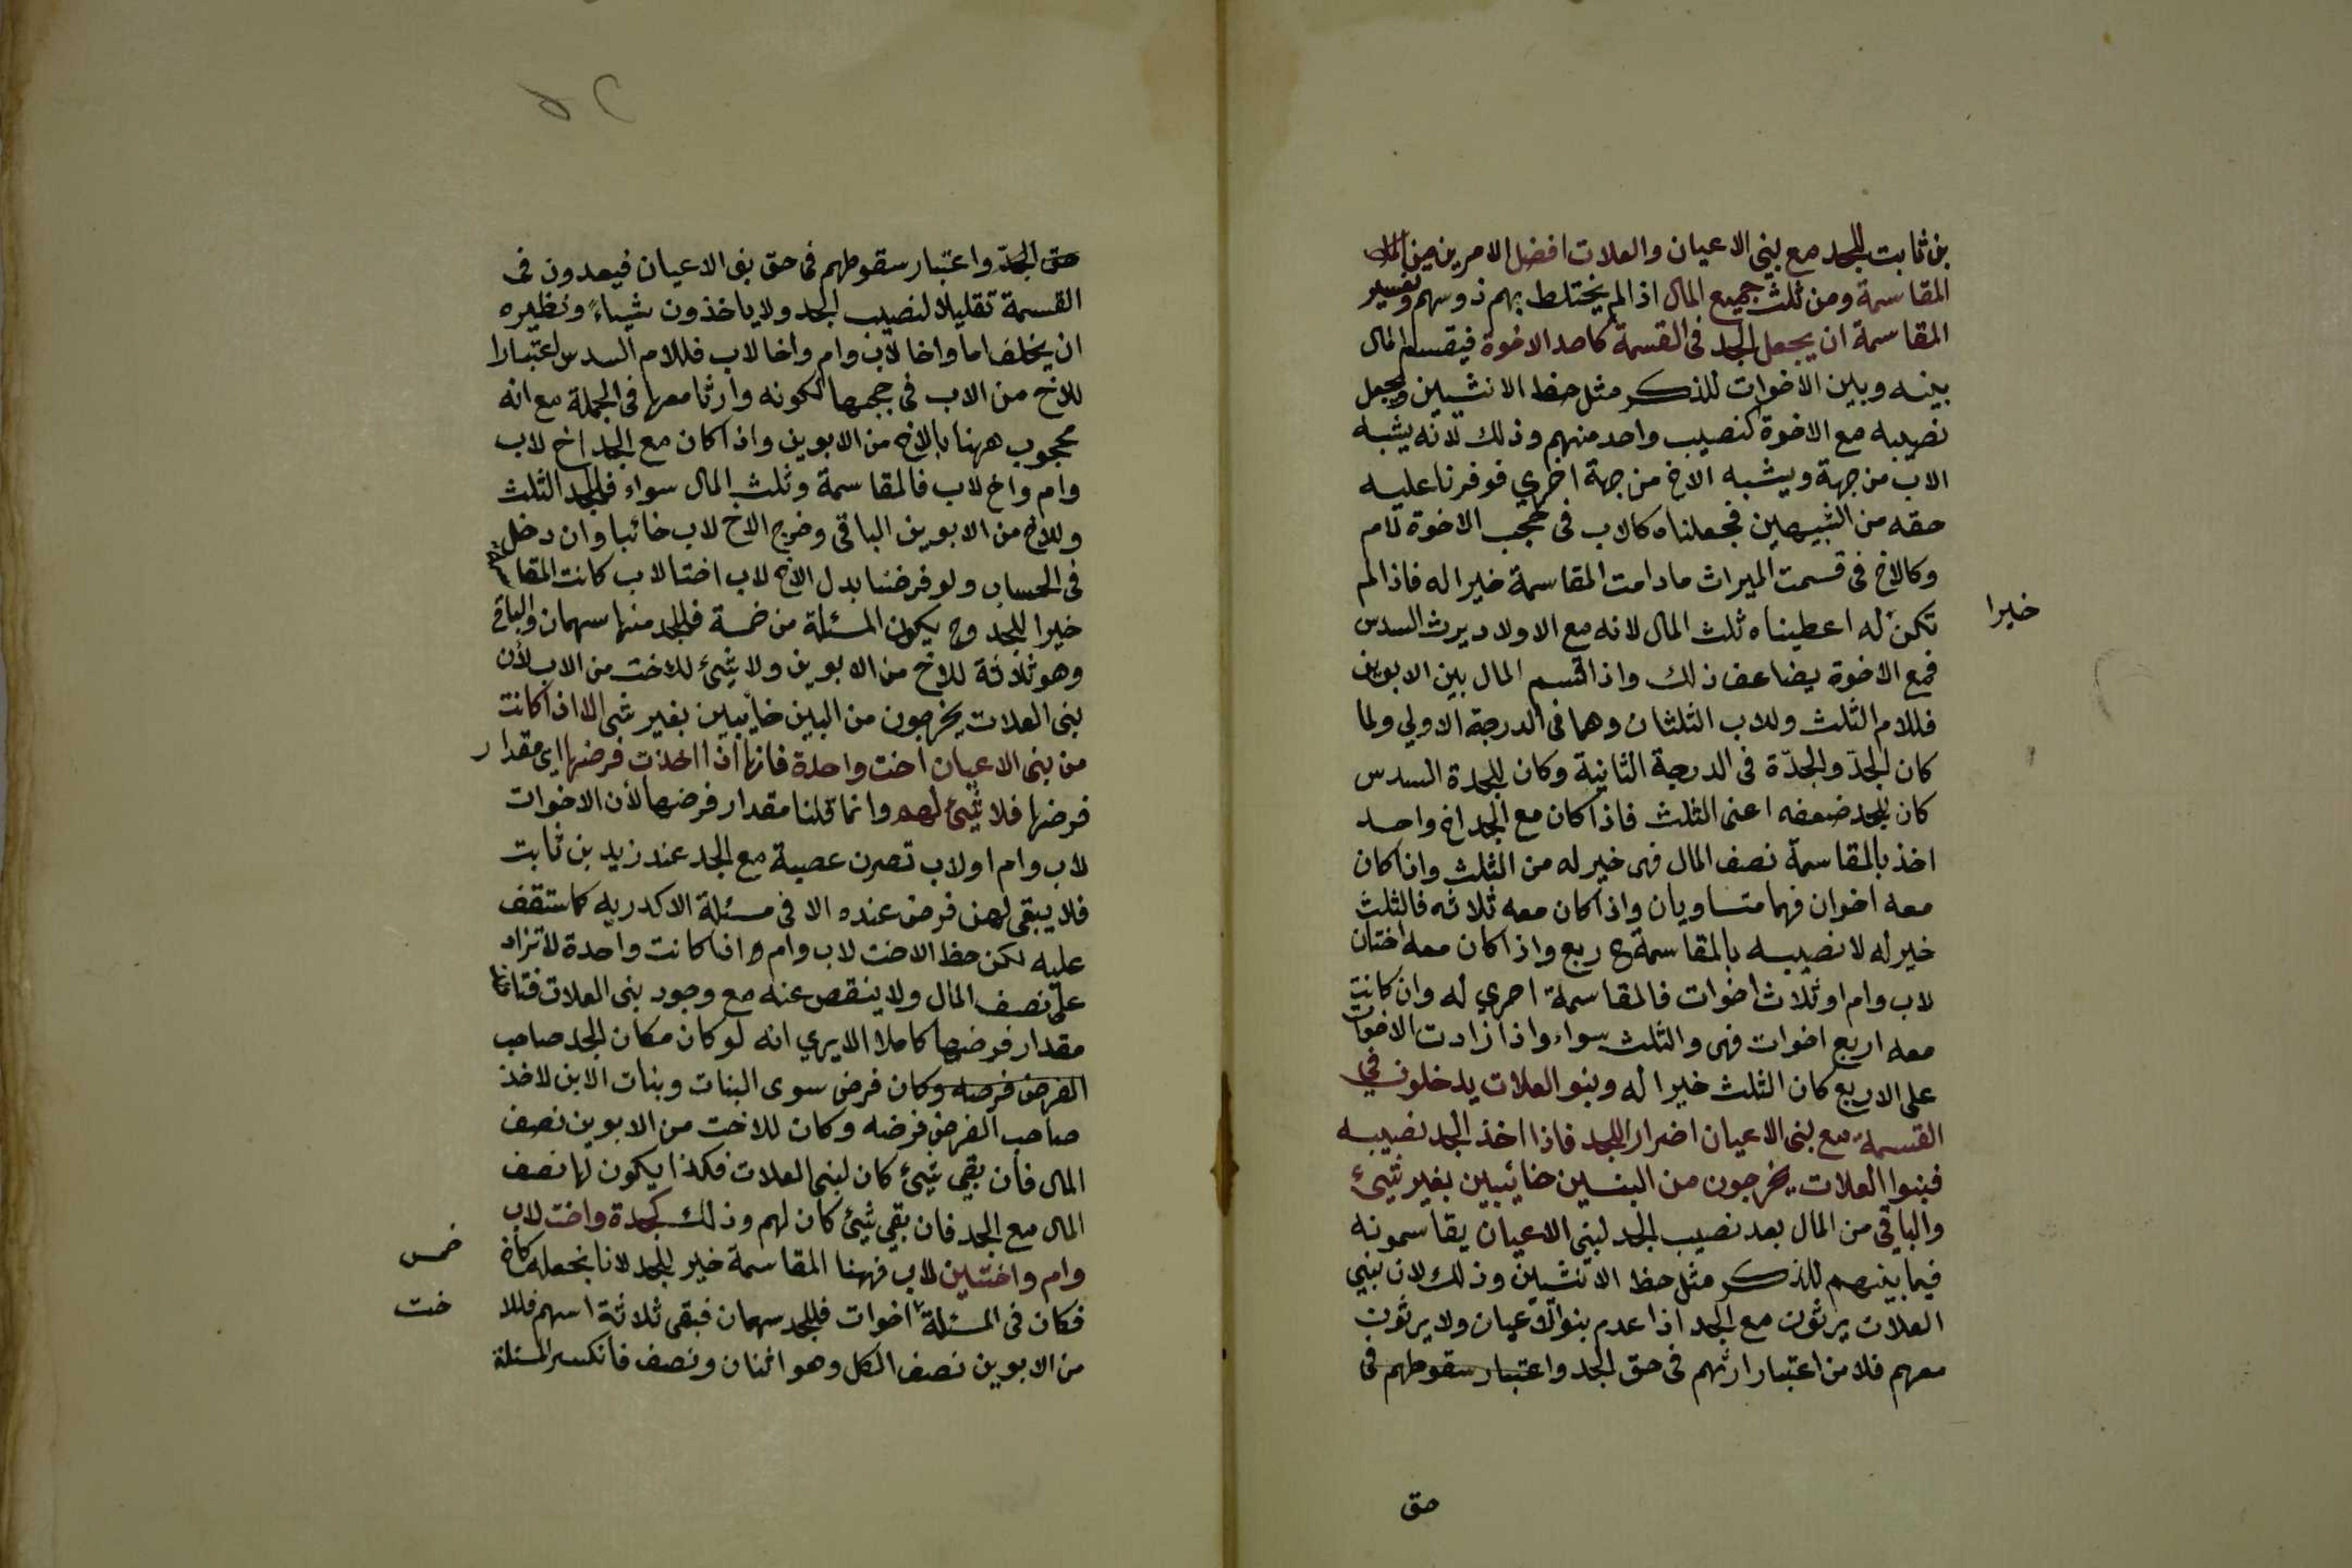 بن ثابت للجد مع بنى الاعيان والعلات افضل الامرين من
المقاسمة ومن ثلث جميع المال اذا لم يختلط بهم ذو سهم وتفسير
المقاسمة ان يجعل الجد فى القسمة كاحد الاخوة فيقسم المال
بينه وبين الاخوات للذكر مثل حظ الانثيين ويجعل
نصيبه مع الاخوة كنصيب واحد منهم وذلك لانه يشبه
الاب من جهة ويشبه الاخ من جهة اخري فوفرنا عليه
حقه من الشبيهين فجعلناه كالاب فى حجب الاخوة لام
وكالاخ فى قسمت الميراث مادامت المقاسمة خيرا له فاذا لم
تكن له اعطيناه ثلث المال لانه مع الاولاد يرث السدس
خيرا
فمع الاخوة يضاعف ذلك واذا قسم المال بين الابوين
فللام الثلث وللاب الثلثان وهما فى الدرجة الاولي ولما
كان الجدّ والجدّة فى الدرجة الثانية وكان للجدة السدس
كان للجد ضعفه اعنى الثلث فاذا كان مع الجد اخ واحد
اخذ بالمقاسمة نصف المال فهى خير له من الثلث واذا كان
معه اخوان فهما متساويان واذا كان معه ثلاثه فالثلث
خير له لا نصيبه بالمقاسمة ح ربع واذا كان معه اختان
لاب وام او ثلاث اخوات فالمقاسمة احري له وان كانت
معه اربع اخوات فهى والثلث سواء واذا زادت الاخوات
على الاربع كان الثلث خيرا له وبنو العلات يدخلون في
القسمة مع بنى الاعيان اضرارا للجد فاذا اخذ الجد نصيبه
فبنوا العلات يخرجون من البين خائبين بغير شيئ
والباقي من المال بعد نصيب الجد لبنى الاعيان يقاسمونه
فيما بينهم للذكر مثل حظ الانثيين وذلك لان بنى
العلات يرثون مع الجد اذا عدم بنوا الاعيان ولا يرثون
معهم فلا من اعتبار ارثهم فى حق الجد واعتبار سقوطهم فى
حق
حق الجدّ واعتبار سقوطهم فى حق بنى الاعيان فيعدون فى
القسمة تقليلا لنصيب الجد ولا ياخذون شيئاء ونظيره
ان يخلف اما واخا لاب وام واخا لاب فللام السدس اعتبارا
للاخ من الاب فى حجبها لكونه وارثا معها فى الجملة مع انه
محجوب ههنا بالاخ من الابوين واذا كان مع الجد اخ لاب
وام واخ لاب فالمقاسمة وثلث المال سواء فللجد الثلث
وللاخ من الابوين الباقى وخرج الاخ لاب خائبا وان دخل
فى الحساب ولو فرضنا بدل الاخ لاب اختا لاب كانت المقاسمة
خيرا للجد وح يكون المسئلة من خمسة فللجد منها سهمان والباقى
وهو ثلاثة للاخ من الابوين ولا شيئ للاخت من الاب لأن
بنى العلات يخرجون من البين خائبين بغير شى الا اذا كانت
من بنى الاعيان اخت واحدة فانها اذا اخذت فرضها اى مقدار
فرضها فلا شيئ لهم وانما قلنا مقدار فرضها لأن الاخوات
لاب وام او لاب تصرن عصبة مع الجد عند زيد بن ثابت
فلا يبقى لهن فرض عنده الا فى مسئلة الاكدريه كما ستقف
عليه لكن حظ الاخت لاب وام اذا كانت واحدة لا تزاد
على نصف المال ولا ينقص عنه مع وجود بنى العلات
مقدار فرضها كاملا الا يري انه لو كان مكان الجد صاحب
الفرض فرضه وكان فرض سوى البنات وبنات الابن لاخذ
صاحب الفرض فرضه وكان للاخت من الابوين نصف
المال فان بقى شيئ كان لبنى العلات فكذا يكون لها نصف
المال مع الجد فان بقي شيئ كان لهم وذلك كجدة واخت لاب
وام واختين لاب فههنا المقاسمة خير للجد لانا نجعله كاخ
خمس
فكان فى المسئلة اخوات فللجد سهمان فبقى ثلاثة اسهم فللا
خت
من الابوين نصف الكل وهو اثنان ونصف فانكسر المسئلة